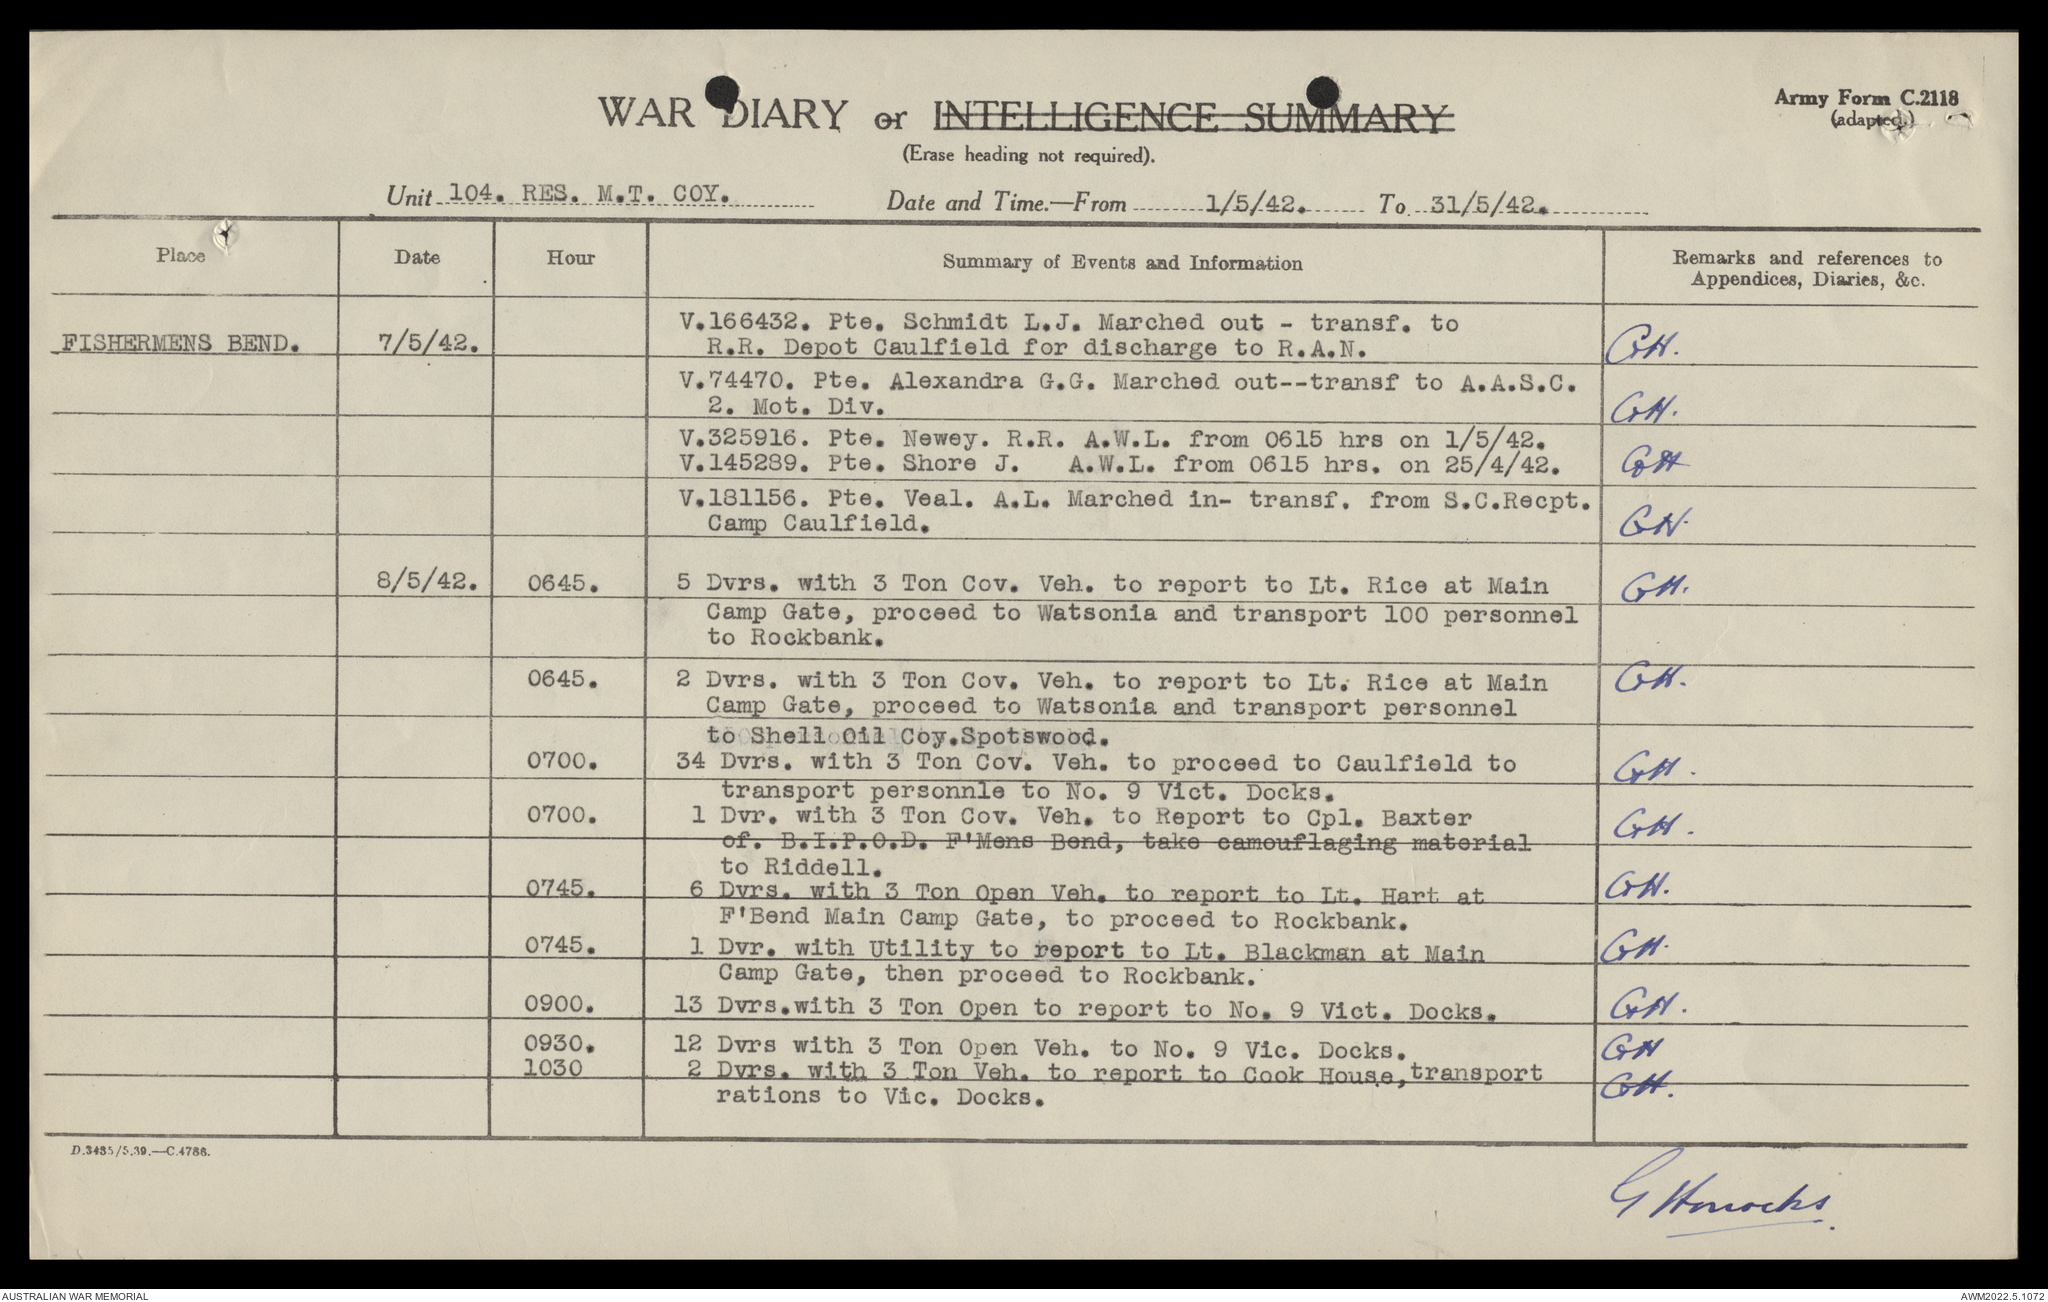 WAR DIARY or INTELLIGENCE SUMMARY
(Erase heading not required).
Army Form C.2118
(adapted.)
Unit 104. RES. M.T. COY. Date and Time.—From 1/5/42. To 31/5/42.
Place Date Hour Summary of Events and Information Remarks and references to
Appendices, Diaries, &c.
V.166432. Pte. Schmidt L.J. Marched out - transf. to
FISHERMENS BEND. 7/5/42. R.R. Depot Caulfield for discharge to R.A.N. GH.
V.74470. Pte. Alexandra G.G. Marched out--transf to A.A.S.C.
2. Mot. Div. GH.
V.325916. Pte. Newey. R.R. A.W.L. from 0615 hrs on 1/5/42.
V.145289. Pte. Shore J. A.W.L. from 0615 hrs. on 25/4/42. GH
V.181156. Pte. Veal. A.L. Marched in- transf. from S.C.Recpt.
Camp Caulfield. GH.
8/5/42. 0645. 5 Dvrs. with 3 Ton Cov. Veh. to report to Lt. Rice at Main GH.
Camp Gate, proceed to Watsonia and transport 100 personnel
to Rockbank.
0645. 2 Dvrs. with 3 Ton Cov. Veh. to report to Lt. Rice at Main GH.
Camp Gate, proceed to Watsonia and transport personnel
to Shell Oil Coy.Spotswood.
0700. 34 Dvrs. with 3 Ton Cov. Veh. to proceed to Caulfield to GH.
transport personnle to No. 9 Vict. Docks.
0700. 1 Dvr. with 3 Ton Cov. Veh. to Report to Cpl. Baxter GH.
of. B.I.P.O.D. F'Mens Bend, take camouflaging material
to Riddell.
0745. 6 Dvrs. with 3 Ton Open Veh. to report to Lt. Hart at GH.
F'Bend Main Camp Gate, to proceed to Rockbank.
0745. 1 Dvr. with Utility to report to Lt. Blackman at Main GH.
Camp Gate, then proceed to Rockbank.
0900. 13 Dvrs.with 3 Ton Open to report to No. 9 Vict. Docks. GH.
0930. 12 Dvrs with 3 Ton Open Veh. to No. 9 Vic. Docks. GH
1030 2 Dvrs. with 3 Ton Veh. to report to Cook House,transport GH.
rations to Vic. Docks.
D.3435/5.39.—C.4786.
G Horrocks.
AUSTRALIAN WAR MEMORIAL AWM2022.5.1072